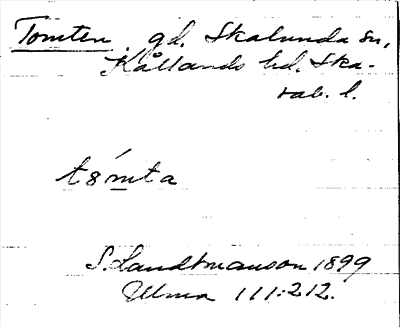 Tomten gd. Skalunda sn,
Kållands hd. Ska-
rab. l.
t8´mta
S. Landtmanson 1899
Ulma 111:212.